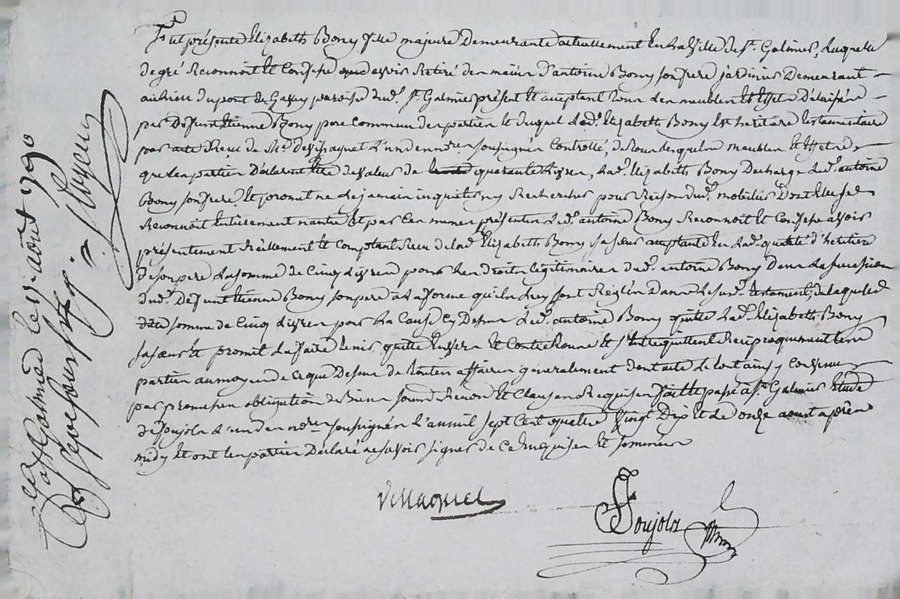 Fut présente Elizabeth Bony fille majeure Demeurante actuellement En la ville de St. Galmier, Laquelle
de gré Reconnoit et Confesse avoir Retiré des mains d'antoine Bony son frere jardinier Demeurant
au lieu du pont de Gavey paroisse dud. St. Galmier présent et acceptant tous les meubles Et Effets Délaissés
par Deffunt Etienne Bony pere commun des parties et duquel lad. Elizabeth Bony Est heritiere testamentaire
par acte Recu de Me. l'un des nores. soussignés Controllé, de tous lesquels meubles et Effets
que les parties Declarent Etre de valeur de quarante Livres, Lad. Elizabeth Bony Decharge led. antoine
Bony son frere, Et promet ne le jamais inquieter ny Rechercher pour Raison dud. mobilier Dont Elle se
Reconnoit Entierement nantie Et par Ces memes présentes Led. antoine Bony Reconnoit et Confesse avoir
présentement Réellement et Comptant Recu de lad. Elizabeth Bony sa sœur acceptante En lad. qualité d'heritiere
de son pere La somme de Cinq Livres pour les Droits legitimaires dud. antoine Bony Dans la succession
dud. Deffunt Etienne Bony son pere a La forme qu'ils Luy sont Reglés Dans le susd. testament, de laquelle
dite somme de Cinq Livres par la Cause Cy Dessus Led. antoine Bony quitte Lad. Elizabeth Bony
sa sœur Et promet La faire tenir quitte Envers et Contre tous Et s'Entrequittent Reciproquement les
parties au moyen de Ce que Dessus de toutes affaires generalement dont acte de tout ainsy Convenu
par promesses obligations de Biens soumd. Renond. Et Clauses Requises fait Et passé a St. Galmier Etude
de Soujols L'un des nores. soussignés L'an mil sept Cent quatre Vingt Dix Et le onze aoust apres
midy Et ont les parties Declaré ne savoir signer de Ce Enquises et sommées
Soujols